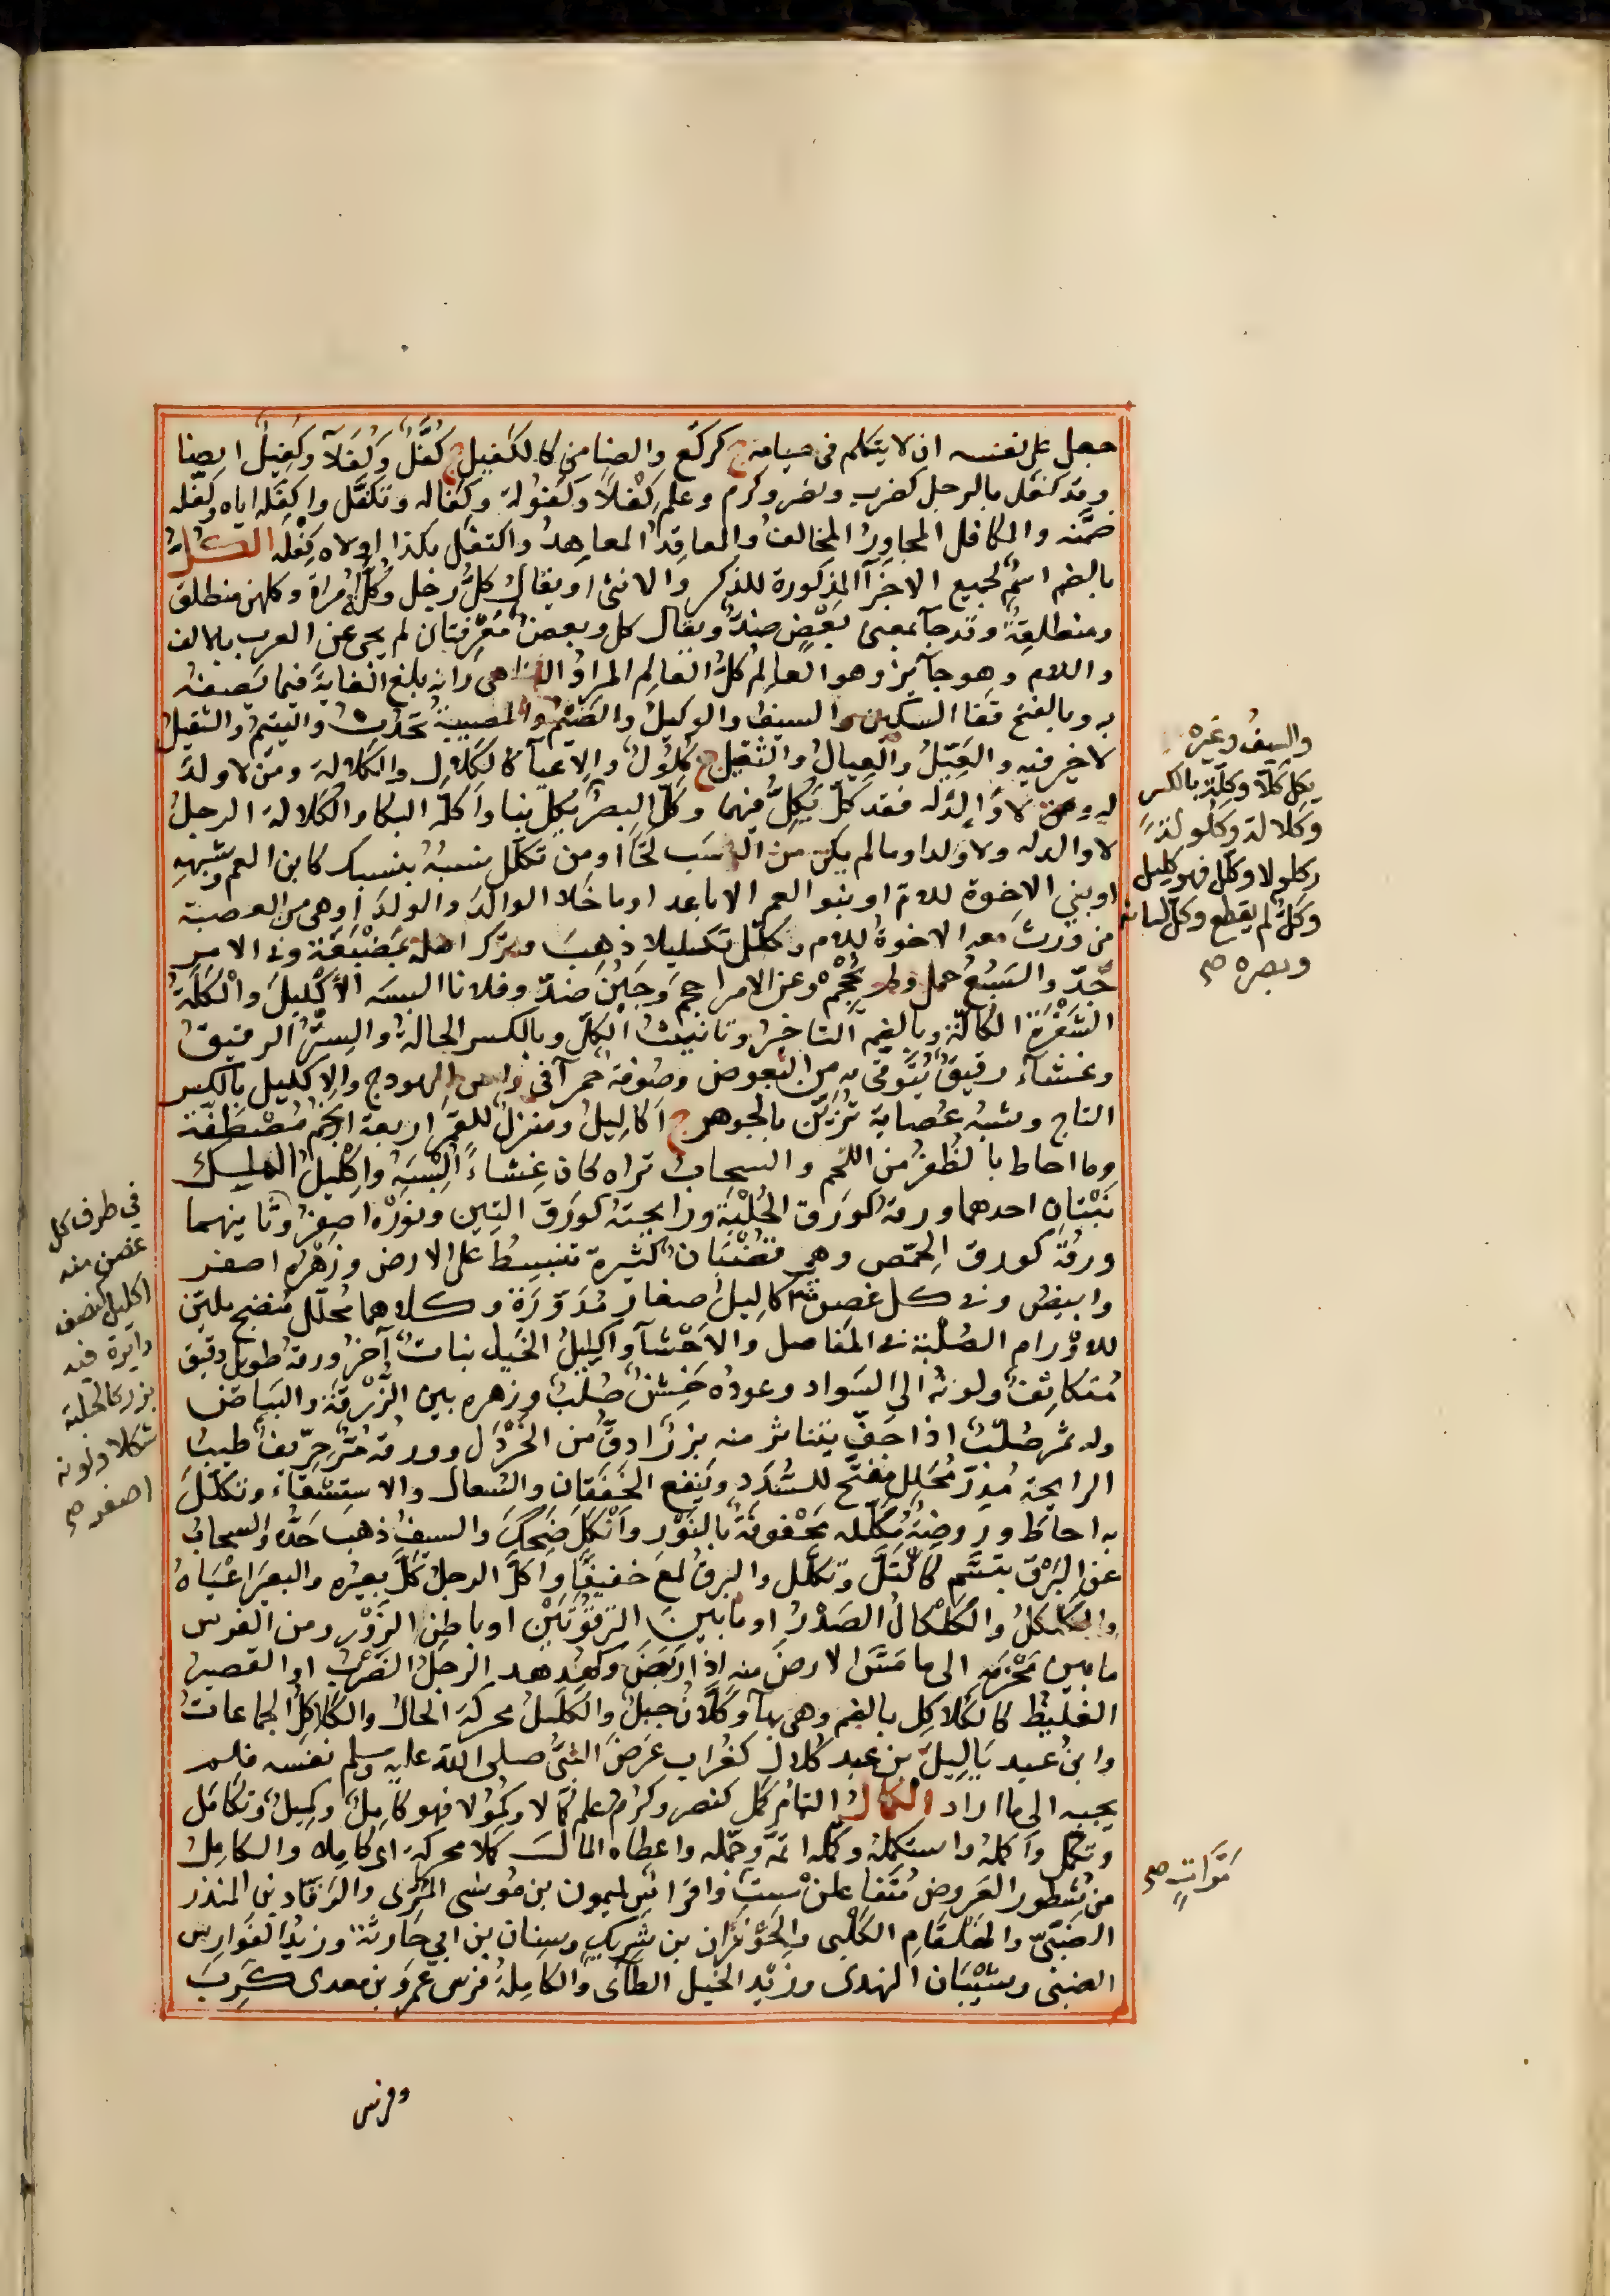 جعل على نفسه ان لا يتكلم فى صيامه ج كركّع والضامن كالكفيل ج كُفَّلٌ وكُفَلآ وكَفِيلٌ ايضا
وقد كفل بالرجل كضرب ونصر وكرم وعلم كَفْلاً وكُفُولة وكَفالة وتكفّل واكفله اياه وكفّله
ضمّنه والمكافل المجاورُ المخالفُ والمعاقدُ المعاهدُ واكتفل بكذا اولاه كِفْلَه الكُلُّ
بالضم اسم لجميع الاجزآ المذكورة للذكر والانثى او يقال كلُّ رجل وكُلَّةُ امراة وكلهن منطلق
ومنطلقةٌ وقد جآ بمعنى بعضٍ ضدٌّ ويقال كل وبعضٌ مَعْرِفتان لم يجئ عن العرب بالالف
واللام وهو جآئز وهو العالِمُ كلُّ العالِم المرادُ التناهى وانه بلغ الغايةَ فيما تَصِفُه
به وبالفتح قفا السكين والسيف والوكيلُ والصَّنَمُ والمصيبةُ تَحْدُثُ واليتيمُ والثقيلُ
لا خير فيه والعَيِّلُ والعِيالُ والثقيل ج كُلُولٌ والاعيآ كالكَلال والكَلالة ومن لا ولدَ
له ومن لا وَالِدَ له فقد كَلّ يَكِلُّ فيهما وكَلّ البصرُ يَكِل نبا واكلّه البكا والكَلالة الرجلُ
لا والد له ولا ولد او ما لم يكن من النسب لَحًّا او من تكلّل نسبهُ بنسبك كابن العم وشبهِه
او بني الاخوة للام او بنو العم الاباعد او ما خلا الوالدَ والولدَ او هى من العصبة
من وَرِث معه الاخوةُ للام وكلّل تكليلا ذهبَ وترك اهله بمَضْيَعَة وفى الامر
جَدّ والسَبُعُ حمل ولم يُحْجِمْ وعن الامر احجمَ وجَبُنَ ضدّ وفلانا البسَه الاِكْليلَ والكَلَّةُ
الشَفْرَةُ الكالّة وبالضم التاخيرُ وتانيث الكُلّ وبالكسر الحالةُ والسِتْرُ الرقيقُ
وغشآء رقيقٌ يُتَوقّى به من البعوض وصُوفة حمرآ فى راس الهودج والاكليل بالكسر
التاج وشبهُ عصابة تُزَيَّن بالجوهر ج اكاليلُ ومنزلٌ للقمر اربعة انجُم مُصْطَفّة
وما احاط بالظُفْر من اللحم والسحابُ تراه كان غِشاءً اُلْبِسَه واِكْليلُ المَلِك
نَبْتانِ احدهما ورقه كورق الحُلْبة ورايحته كورق التِين ونَوْرُه اصفرُ وثانيهما
ورقُهُ كورق الحِمّص وهى قُضْبَان كثيرة تنبسط على الارض وزهره اصفر
وابيضُ وفى كل غصن اكاليلُ صغار مُدَوَّرة وكلاهما مُحلّل مُنضج مليّن
للاورام الصُلْبة فى المفاصل والاحْشآ واكليلُ الجبل نباتٌ آخرُ ورقه طويل دقيق
مُتكاثفٌ ولونه الى السواد وعودُه خَشِنٌ صُلْبٌ وزهره بين الزُرقة والبياض
وله ثمر صُلْبٌ اذا جفّ يتناثر منه بزرٌ ادقُّ من الخردل وورقه مُرٌّ حِرّيف طيب
الرايحة مُدِرّ مُحلّل مُفتّح للسُّدَد وينفع الخَفَقان والسُعال والاستسقاء وتكلّل
به احاط وروضةٌ مُكلّلة مَحْفوفةٌ بالنَوْر وانْكَلّ ضحِكَ والسيفُ ذهب حَدُّه والسحابُ
عن البَرْق تبسّم كاكْتَلّ وتكلّل والبرقُ لمع خفيفًا واكلَّ الرجلُ كَلَّ بعيرُه والبعيرَ اعْياهُ
والكَلْكَلُ والكَلْكالُ الصَدْرُ او ما بين التَرْقُوَتَيْنِ او باطن الزَوْر ومن الفرس
ما بين مَحْزِمِه الى ما مَسّ الارضَ منه اذا رَبَضَ وكهُدهد الرجلُ الضَرْبُ او القصير
الغليظُ كالكُلاكِل بالضم وهى بهآ وكَلّانُ جبلٌ والكَلَلُ محركة الحالُ والكَلاكِلُ الجماعاتُ
وابنُ عبد يَالِيلَ بن عبد كُلال كغُراب عَرَضَ النبيُّ صلى الله عليه وسلم نفسه فلم
يجبه الى ما اراد الكمالُ التمام كمل كنصر وكرُم وعلم كَمَالا وكُمُولا فهو كامِلٌ وكَمِيلٌ وتكامَل
وتكمّل واكمله واستكمله وكمّله اتمّه وجمّله واعطاه المالَ كَمَلا محركة اى كاملا والكامل
من شُطور العَروض مُتَفاعلن سِتَّ وافراسٌ لميمون بن موسى المُرّى والرَقّاد بن المنذر
الضَبّى والهِلْقام الكَلْبى والحَوْفَزان بن شَرِيك وسِنان بن ابي حارثة وزيد الفوارس
الضبى وشَيْبَان النهدى وزيد الخيل الطآئى والكاملةُ فرس عَمرو بن معدى كَرِبَ
وفرس
والسيفُ وغيره
يكل كلا وكلة بالكسر
وكلالة وكلولة
وكلولا وكلّل فهو كليل
وكلّ لم يقطع وكلّ لسانه
وبصره صح
فى طرف كل
غصن منه
اكليل كنصف
دايرة فيه
بزر كالحلبة
شكلا ولونه
اصفر صح
مَرَّاتٍ صح